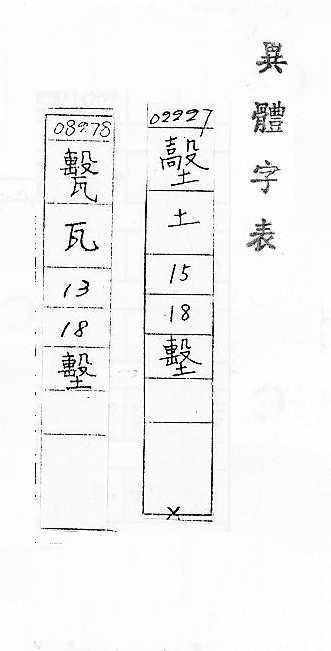 異體字表
02927
土
15
18
墼
08278
瓦
13
18
墼